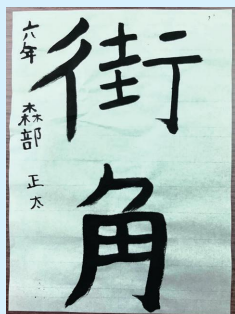 街角
六年 森部 正太